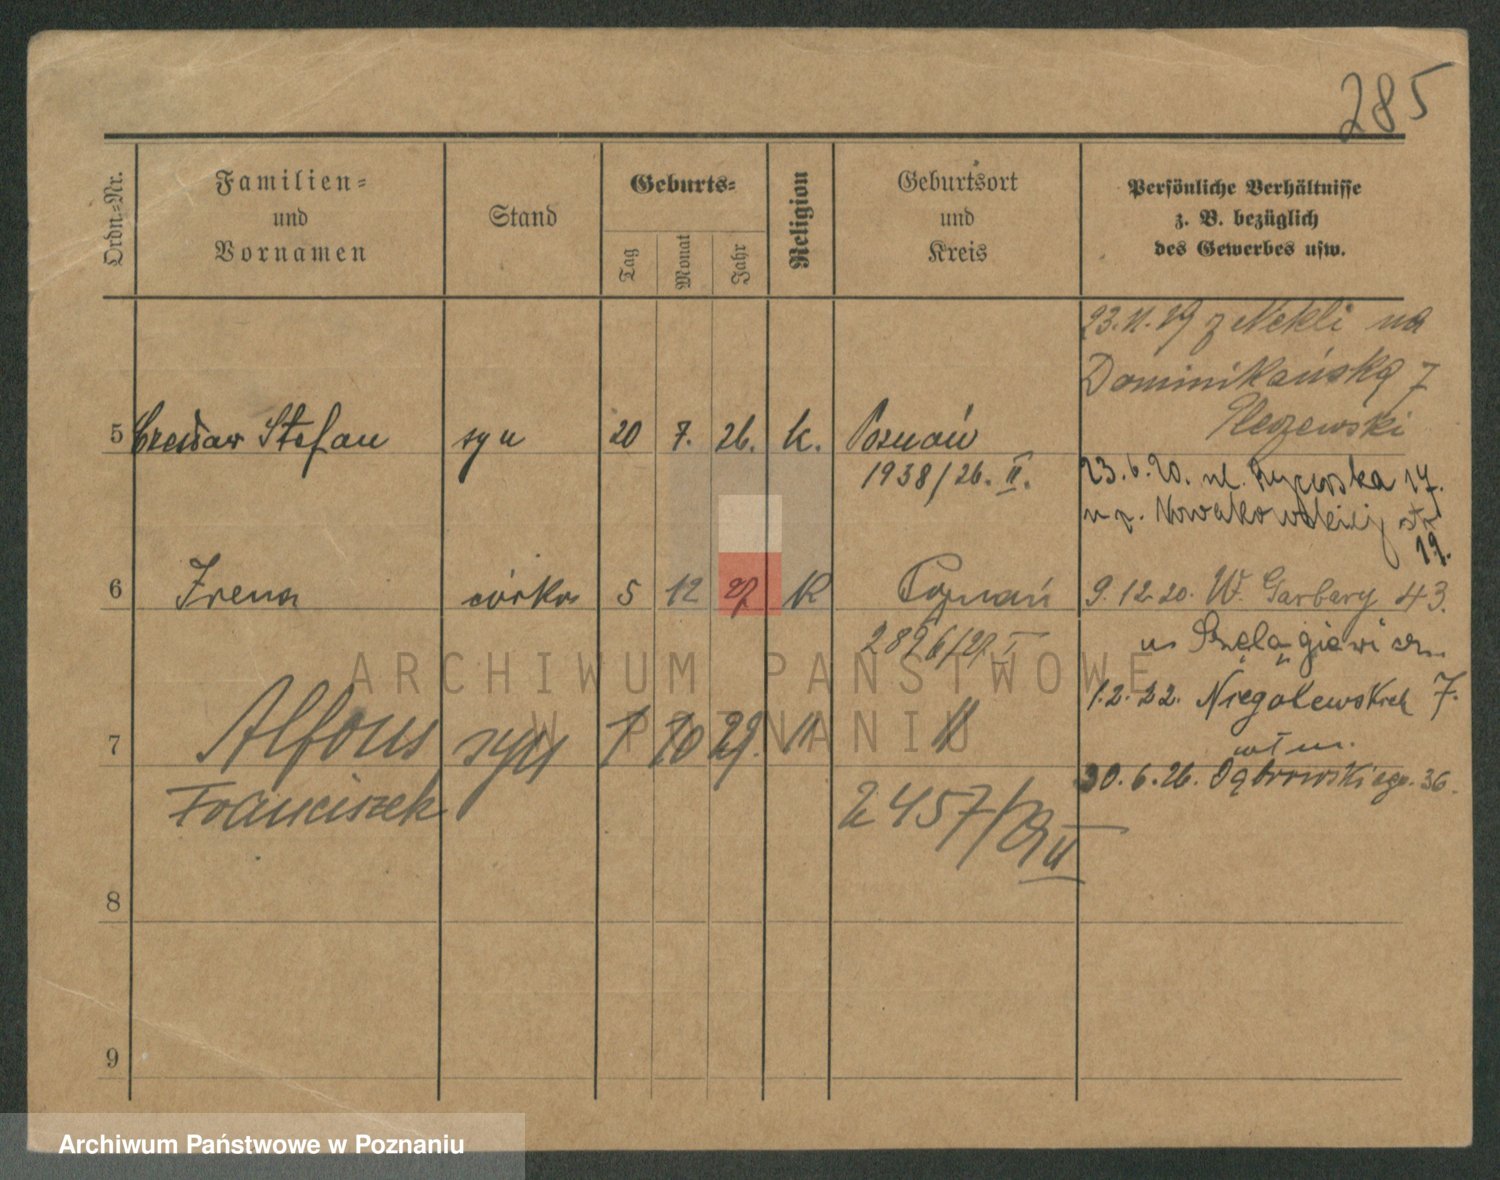 285
Ordn.-Nr.
Familien-
und
Vornamen
Stand
Geburts-
Tag
Monat
Jahr
Religion
Geburtsort
und
Kreis
Persönliche Verhältnisse
z. B. bezüglich
des Gewerbes usw.
23.11.19 z Nekli na
Dominikańską 7
5 Czesław Stefan syn 20 7. 26. k. Poznań
1938/26. II.
23.6.20. ul. Rycerska 17.
Nowakowskiej
19.
6 Irena córka 5 12 27 k Poznań
2826/27 I
9.12.20. W. Garbary 43.
u Szelągiewicza
1.2.22. Niegolewskich 7.
7 Alfons syn 1 10 29. " "
Franciszek
2457/29 II
30.6.26. Dąbrowskiego. 36.
8
9
ARCHIWUM PAŃSTWOWE
W POZNANIU
Archiwum Państwowe w Poznaniu